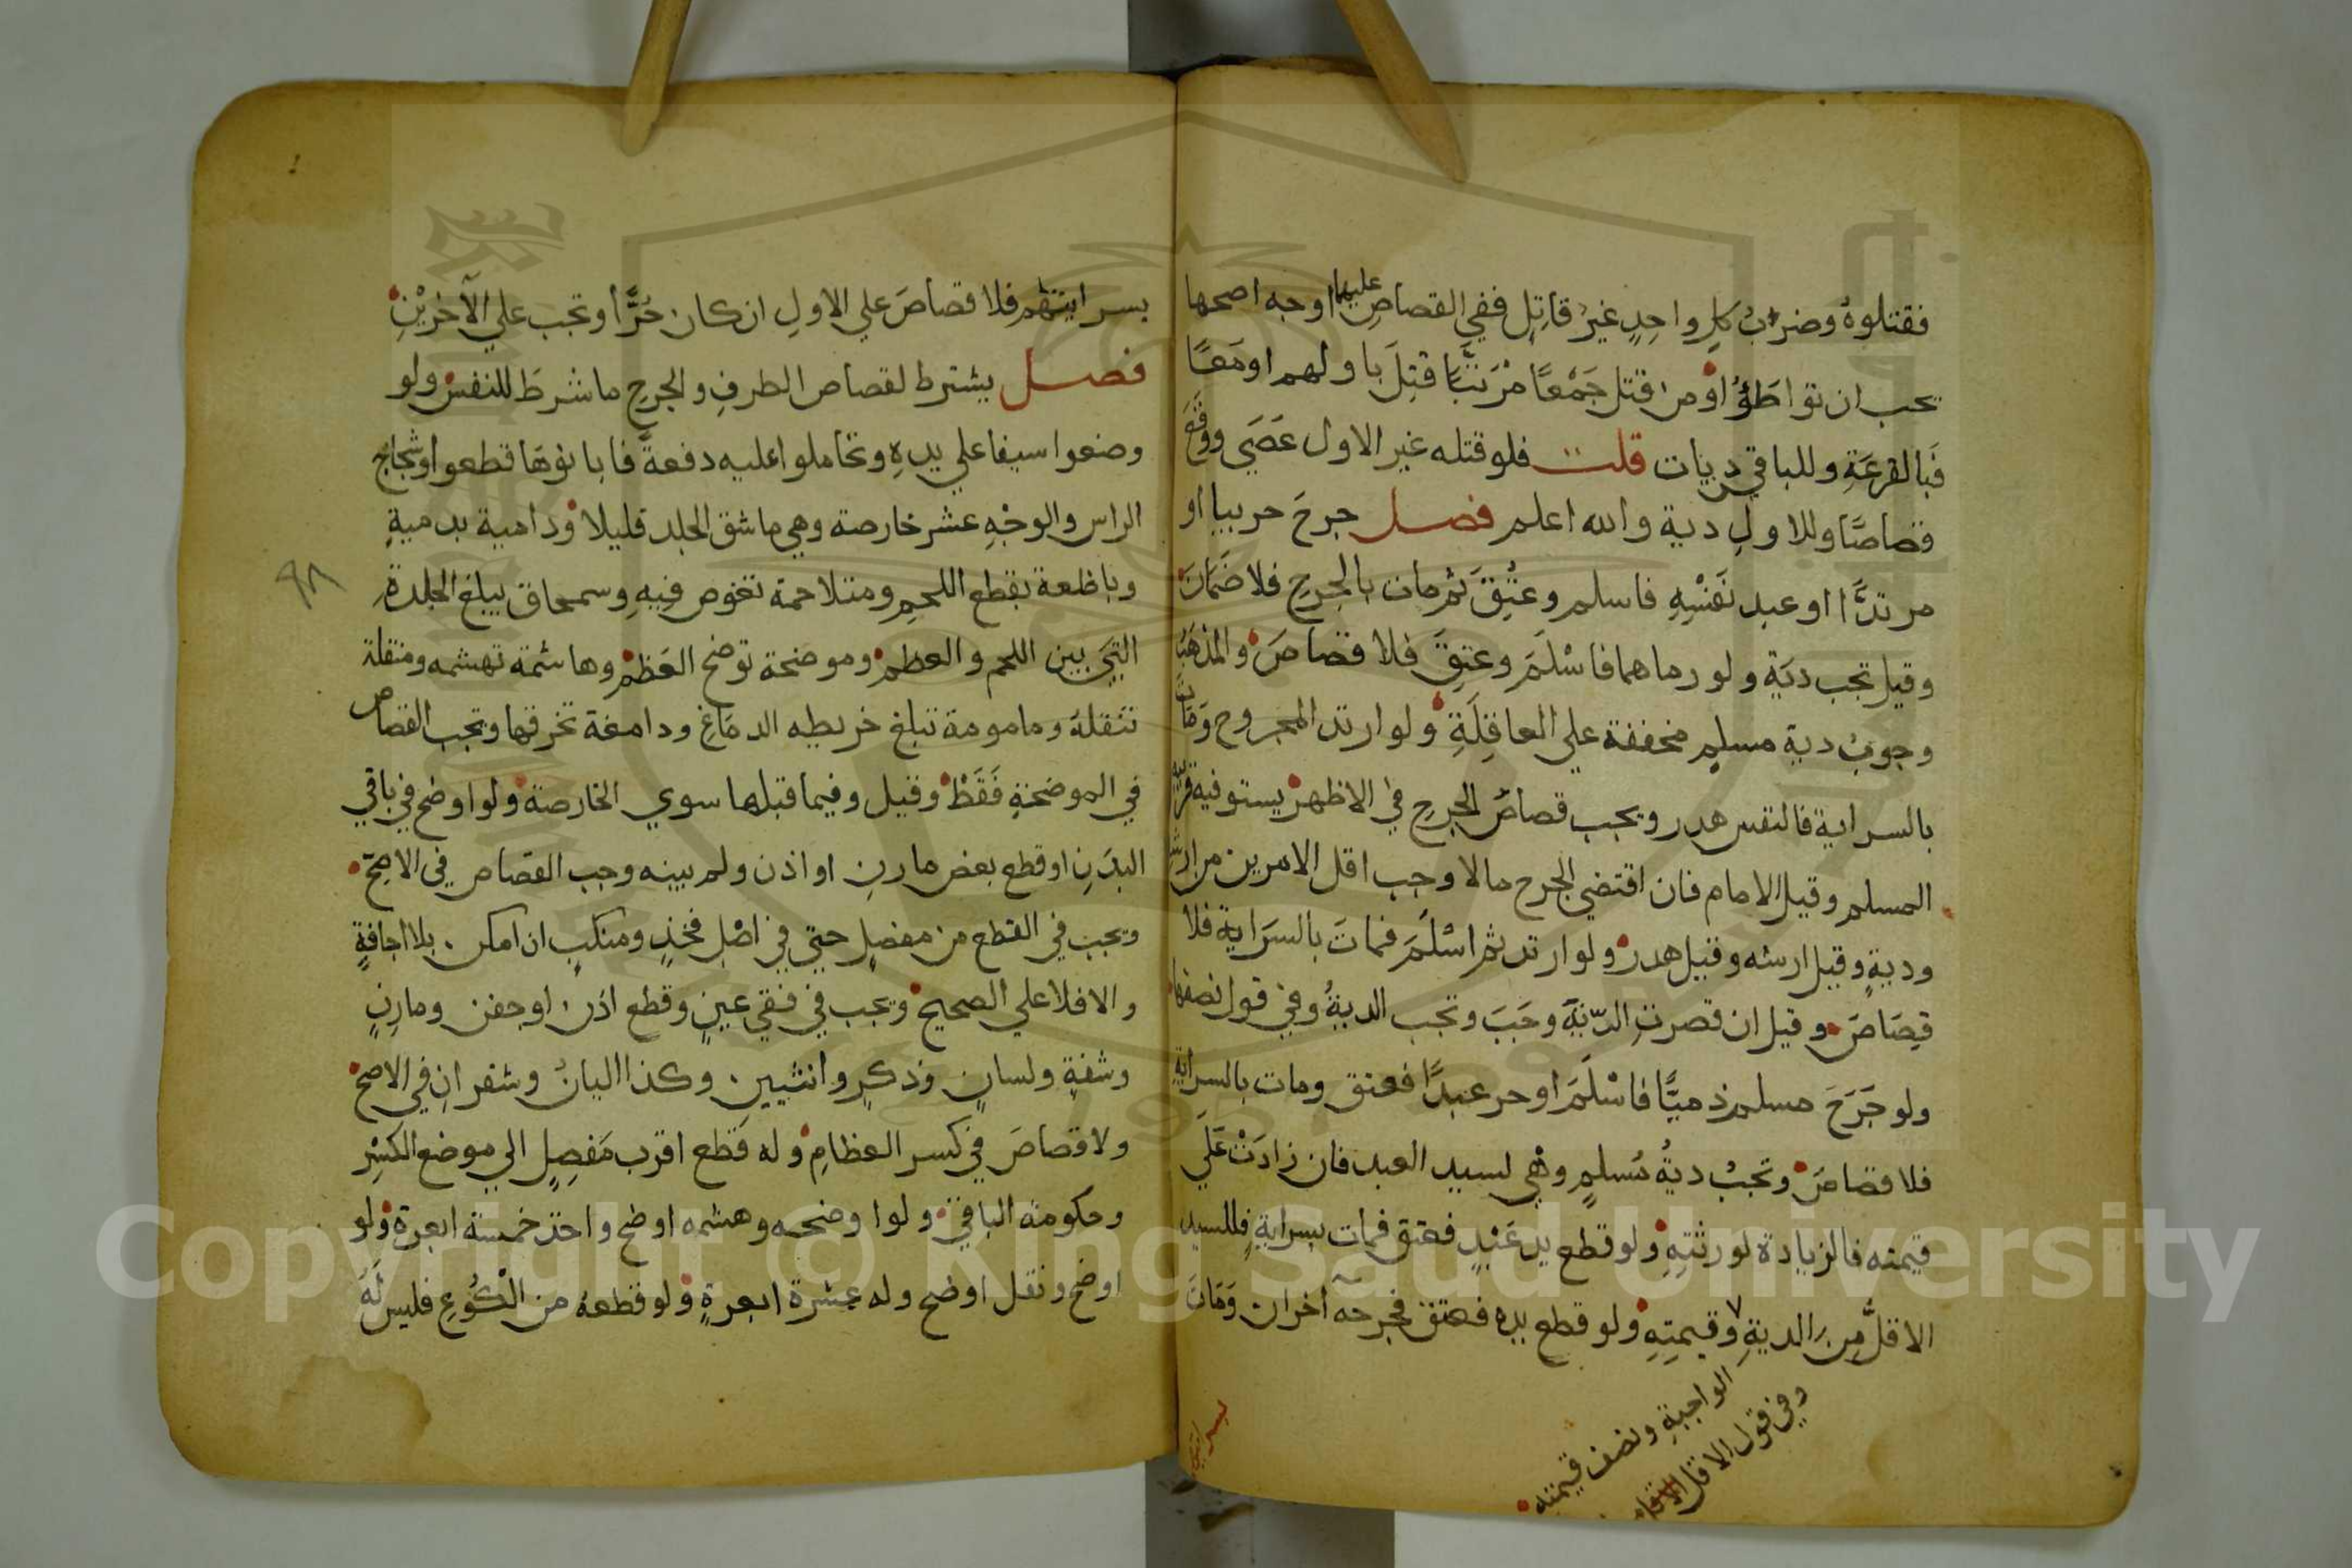 فقتلوهُ وضربُ كلِ واحِدٍ غيرُ قاتِلٍ ففي القصاصِ عليهما اوجه اصحها
يجب ان تواطَؤُ اوْ من قتل جَمْعًا مُرَتَّبًا قتِلَ باولهم اومَعًا
فَبالقرعَةِ وللباقي ديات قلت فلو قتله غير الاول عَصَي ووقَعَ
قصاصًا وللاولِ دية والله اعلم فصل جرحَ حربيا او
مرتدًّا اوعبد نَفْسِهِ فاسلم وعتِقَ ثم مات بالجرحِ فلا ضَمَانَ
وقيل تجب ديَة ولو رماهما فاسْلَمَ وعتِقَ فلا قصاصَ والمذهَبُ
وجوبُ دية مسلمٍ مخففة علي العاقِلَةِ ولو ارتد المجروح وَمَاتَ
بالسراية فالنفس هدر ويجب قصاصُ الجرحِ في الاظهر يستوفيه قريبُه
المسلم وقيل الامام فان اقتضي الجرح مالا وجب اقل الامرين من ارش
وديةٍ وقيل ارشه وقيل هدر ولو ارتد ثم اسْلَمَ فماتَ بالسَراية فلا
قِصَاصَ وقيل ان قصرتِ الرّدّةَ وجَبَ وتجب الديةُ وفي قول نصفها
ولو جَرَحَ مسلم ذميًّا فاسْلَمَ اوحر عبدًا فعتق ومات بالسرايةِ
فلا قصاصَ وتجبُ ديةُ مُسلمٍ وهْي لسيد العبد فان زادَتْ عَلَي
قيمته فالزيادة لورثتِهِ ولو قطع يد عَبْدٍ فعتق فمات بسرايةٍ فللسيد
الاقلُّ مِن الديةِ وقيمتِهِ ولو قطع يده فعتق فجرحهَ آخران وَمَاتَ
الواجبةِ ونصف قيمته
وفي قول الاقل
بسرايتهم
بسرايتهم فلا قصاصَ علي الاولِ ان كان حُرًّا وتجب علي الآخرَيْنِ
فصل يشترط لقصاص الطرفِ والجرحِ ما شرطَ للنفس ولو
وضعوا سيفا علي يدهِ وتحاملوا عليه دفعةً فابانوهَا قطعوا وشجاجُ
الراس والوجْهِ عشر خارصة وهي ما شق الجلد قليلا ودامية بدميةٍ
وباظعة تقطع اللحمِ ومتلاحمة تغوص فيهِ وسمحاق يبلغ الجلدةِ
التيَ بين اللحم والعظم وموضحة توضح العَظم وهاشمة تهشمه ومنقلة
تنقلهُ ومامومة تبلغ خريطه الدمَاغِ ودامغة تخرقها ويجب القصاص
في الموضحةِ فَقَطْ وقيل وفيما قبلها سوي الخارصة ولو اوضح في باقي
البدَنِ اوقطع بعض مارنٍ او اذن ولم يبينه وجب القصاص في الاصحّ
ويجب في القطع من مفصلٍ حتي في اصْلِ فخذٍ ومنكبٍ ان امكن بلا اجافةٍ
والا فلا علي الصحيح ويجب في فقي عينٍ وقطع اذن اوجفن ومارِنٍ
وشفةٍ ولسانٍ وذكرٍ وانثيين وكذا اليانُ وشفرانِ في الاصح
ولا قصاصَ في كسر العظامِ وله قَطع اقرب مَفصِلٍ الي موضع الكسْرِ
وحكومة الباقي ولو اوضحه وهشمه اوضح واخذ خمسة ابعرة ولو
اوضح ونقل اوضح وله عشرة ابعرةٍ ولو قطعهُ من الْكُوعِ فليس لَهُ
٩٨
Copyright © King Saud University